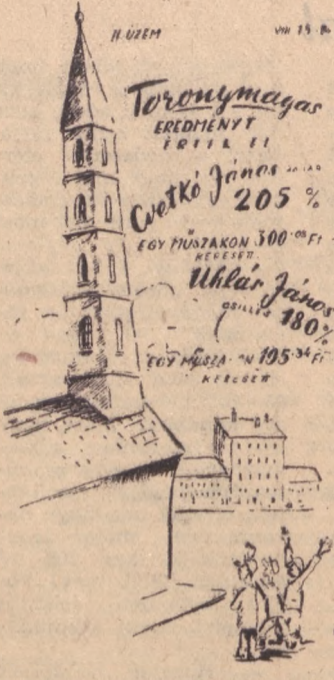 II. ÜZEM
VIII 19.
Toronymagas
EREDMÉNYT
ÉRTEK EL
Cvetkó János
205 %
EGY MŰSZAKON 300.08 Ft
KERESETT
Uhlár János
CSILLÉS 180%
EGY MŰSZA ON 195.34 Ft
KERESETT